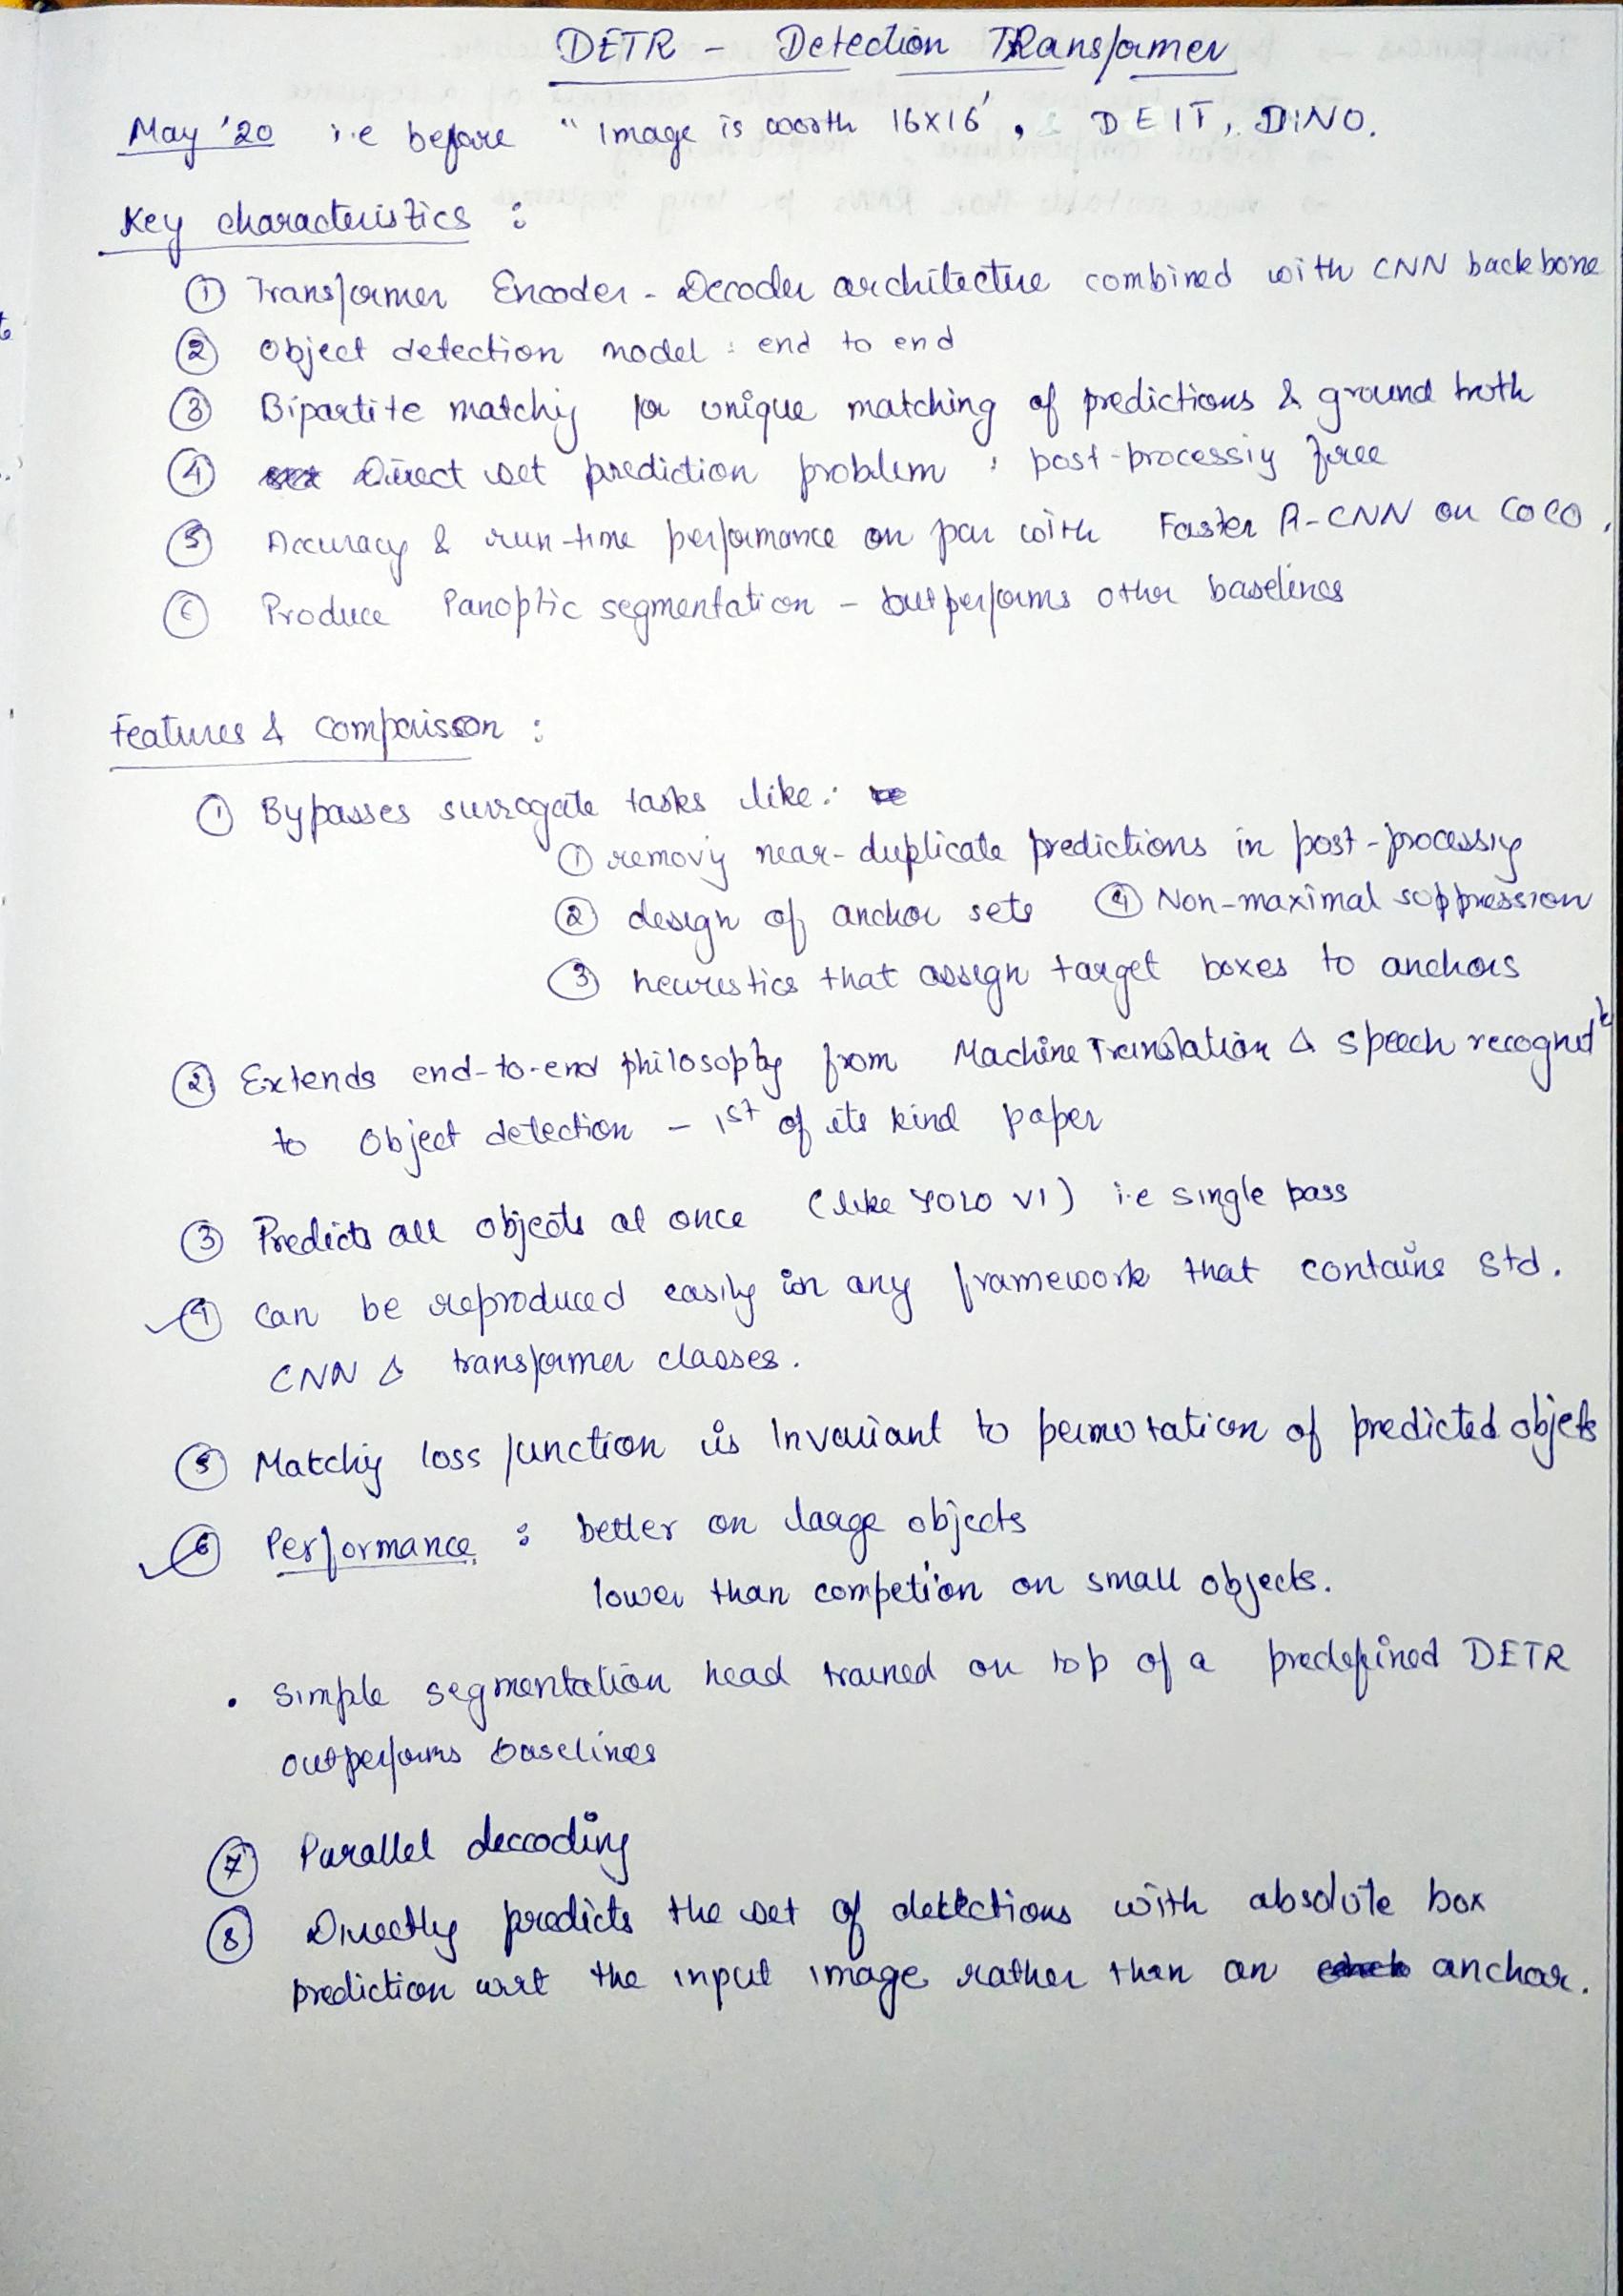 DETR - Detection TRansformer
May '20 i.e before "Image is worth 16x16', DEIT, DINO.
Key characteristics :
① Transformer Encoder - Decoder architecture combined with CNN backbone
② Object detection model : end to end
③ Bipartite matching for unique matching of predictions & ground truth
④ Direct set prediction problem ; post-processing free
⑤ Accuracy & run-time performance on par with Faster R-CNN on COCO,
⑥ Produce Panoptic segmentation - outperforms other baselines
Features & Comparisson :
① Bypasses surrogate tasks like :
① removing near-duplicate predictions in post-processing
② design of anchor sets ④ Non-maximal suppression
③ heuristics that assign target boxes to anchors
② Extends end-to-end philosophy from Machine Translation & speech recognitn
to Object detection - 1st of its kind paper
③ Predicts all objects at once (like YOLO V1) i.e single pass
④ Can be reproduced easily in any framework that contains std.
CNN & transformer classes.
⑤ Matching loss function is Invariant to permutation of predicted objets
⑥ Performance : better on large objects
lower than competion on small objects.
• Simple segmentation head trained on top of a predefined DETR
outperforms baselines
⑦ Parallel deccoding
⑧ Directly predicts the set of detections with absolute box
prediction wrt the input image rather than an anchor.